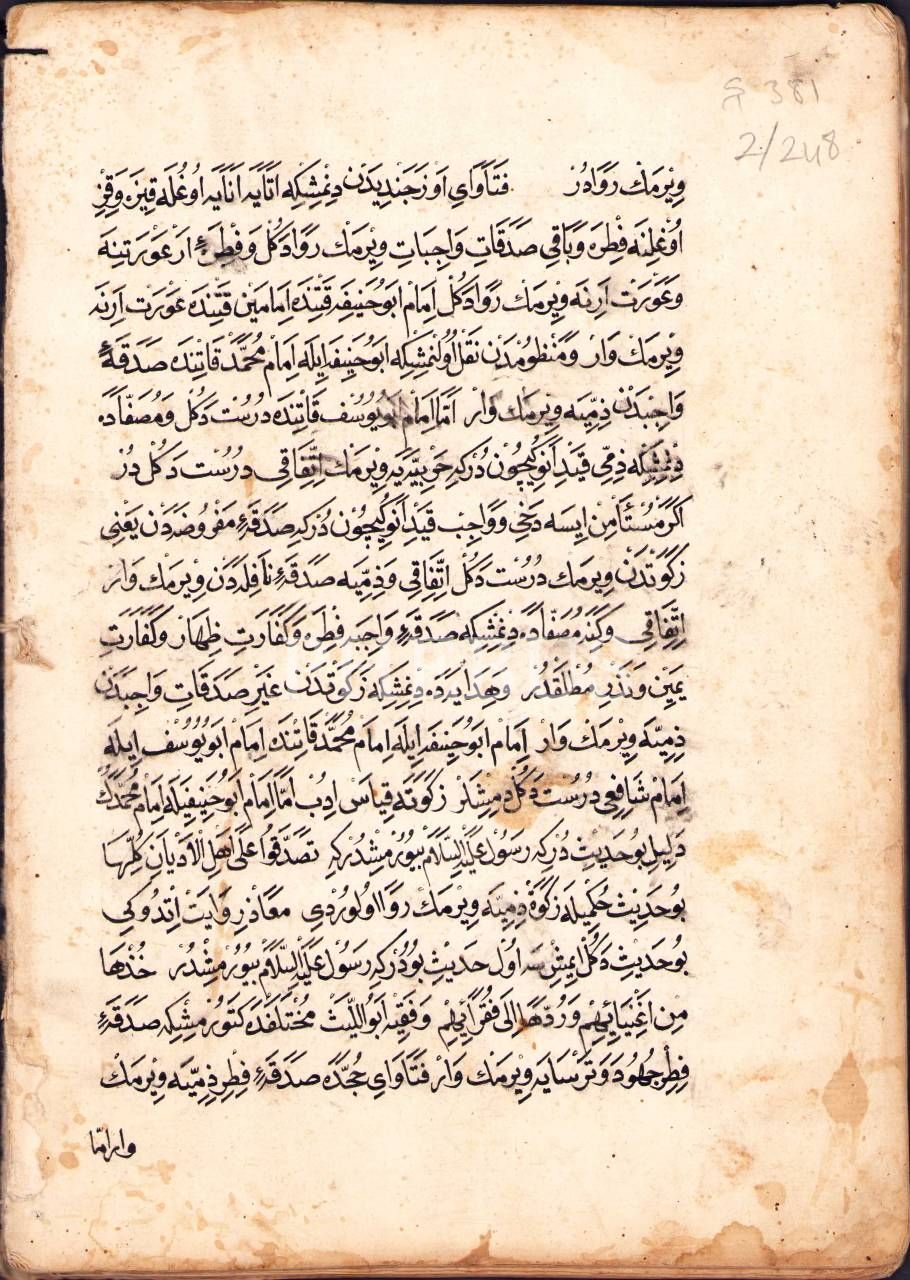 381
2/248
ويرمك روادر فتاواي اوزجنديدن دنمشكه اتايه انايه اوغله قيزه وقز
اوغلنه فطره وباقي صدقات واجبات ويرمك روا دكل وفطرهء ار عورتنه
وعورت ارنه ويرمك روا دكل امام ابو حنيفه قتنده امامين قتنده عورت ارنه
ويرمك وار ومنظومدن نقل اولنمشكه ابو حنيفه ايله امام محمد قاتنده صدقهء
واجبدن ذميه ويرمك وار اما امام ابو يوسف قاتنده درست دكل ومصفاده
دنمشكه ذمي قيد انوكيچون دركه حربييه ويرمك اتفاقي درست دكل در
اكر مستأمن ايسه دخي وواجب قيد انوكيچون دركه صدقهء مفروضه دن يعني
زكوتدن ويرمك درست دكل اتفاقي وذميه صدقهء نافله دن ويرمك وار
اتفاقي وكنه مصفاده دنمشكه صدقهء واجبه فطره وكفارت ظهار وكفارت
يمين ونذر مطلقدر وهدايه ده دنمشكه زكوتدن غير صدقات واجبدن
ذميه ويرمك وار امام ابو حنيفه ايله امام محمد قاتنده امام ابو يوسف ايله
امام شافعي درست دكل دمشلر زكوته قياس ادب اما امام ابو حنيفيله امام محمدك
دليل بو حديث دركه رسول عليه السلام بيورمشدركه تصدقوا على اهل الاديان كلها
بو حديث حكميله زكوة ذميه ويرمك روا اولوردي معاذ روايت اتدوكي
بو حديث دكل ايمش سه اول حديث بودركه رسول عليه السلام بيورمشدر خذها
من اغنيائهم وردها الى فقرائهم وفقيه ابو الليث مختلفده كتورمشكه صدقهء
فطر جهوده وترسايه ويرمك وار فتاواي حجه ده صدقهء فطر ذميه ويرمك
وار اما